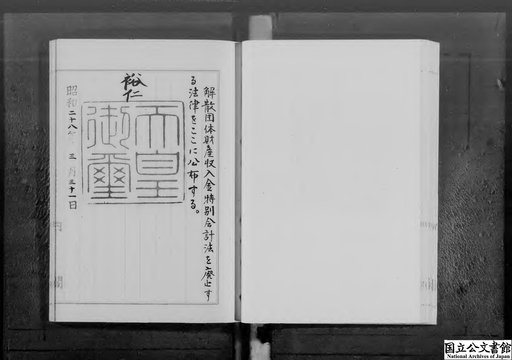 解散団体財産収入金特別会計法を廃止す
る法律をここに公布する。
裕仁
天皇
御璽
昭和二十八年三月三十一日
国立公文書館
National Archives of Japan